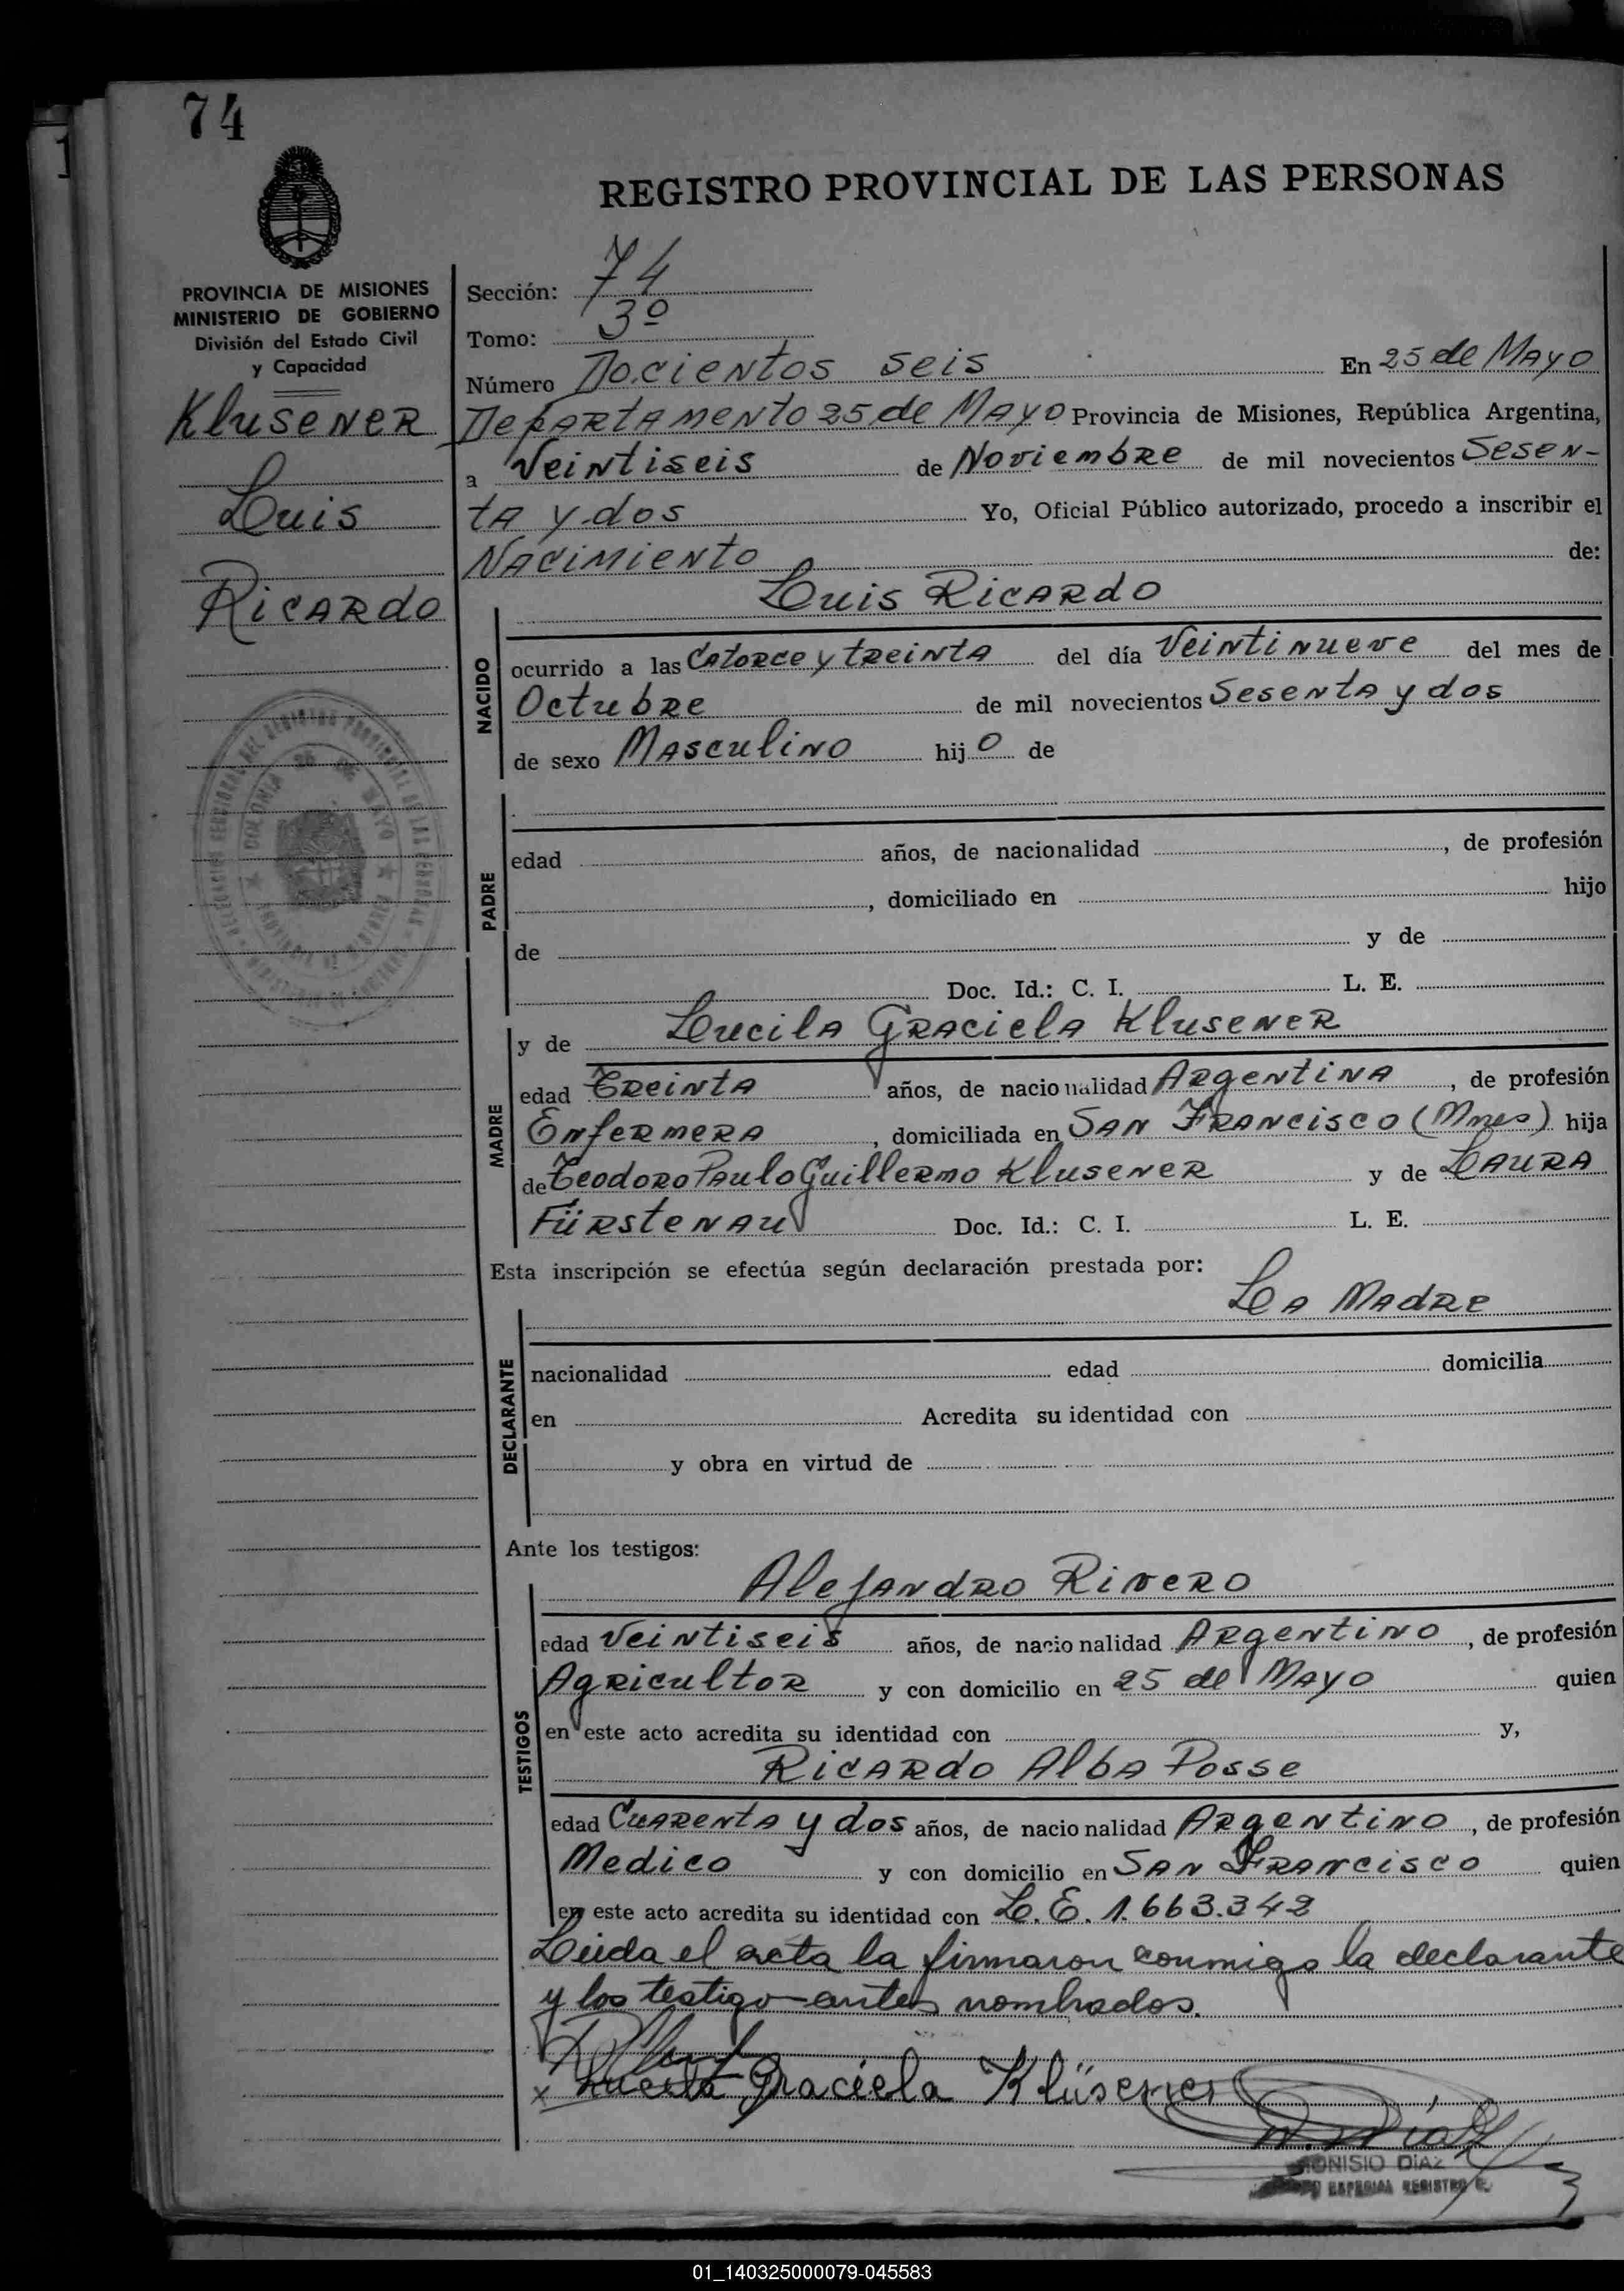 74
REGISTRO PROVINCIAL DE LAS PERSONAS
PROVINCIA DE MISIONES
MINISTERIO DE GOBIERNO
División del Estado Civil
y Capacidad
Klusener
Luis
Ricardo
Sección: 74
Tomo: 3º
Número Docientos seis En 25 de Mayo
Departamento 25 de Mayo Provincia de Misiones, República Argentina,
a Veintiseis de Noviembre de mil novecientos Sesen-
ta y dos Yo, Oficial Público autorizado, procedo a inscribir el
Nacimiento de:
Luis Ricardo
NACIDO
ocurrido a las Catorce y treinta del día Veintinueve del mes de
Octubre de mil novecientos Sesenta y dos
de sexo Masculino hijo de
PADRE
edad años, de nacionalidad , de profesión
, domiciliado en hijo
de y de
Doc. Id.: C. I. L. E.
MADRE
y de Lucila Graciela Klusener
edad Treinta años, de nacionalidad Argentina, de profesión
Enfermera, domiciliada en San Francisco (Mnes) hija
de Teodoro Paulo Guillermo Klusener y de Laura
Fürstenau Doc. Id.: C. I. L. E.
Esta inscripción se efectúa según declaración prestada por:
La Madre
DECLARANTE
nacionalidad edad domicilia
en Acredita su identidad con
y obra en virtud de
Ante los testigos:
Alejandro Rivero
TESTIGOS
edad Veintiseis años, de nacionalidad Argentino, de profesión
Agricultor y con domicilio en 25 de Mayo quien
en este acto acredita su identidad con y,
Ricardo Alba Posse
edad Cuarenta y dos años, de nacionalidad Argentino, de profesión
Medico y con domicilio en San Francisco quien
en este acto acredita su identidad con L.E. 1.663.342
Leida el acta la firmaron conmigo la declarante
y los testigo antes nombrados.
x Lucila Graciela Klüsener
D. Díaz
DIONISIO DIAZ
ESPECIAL REGISTRO
01_140325000079-045583